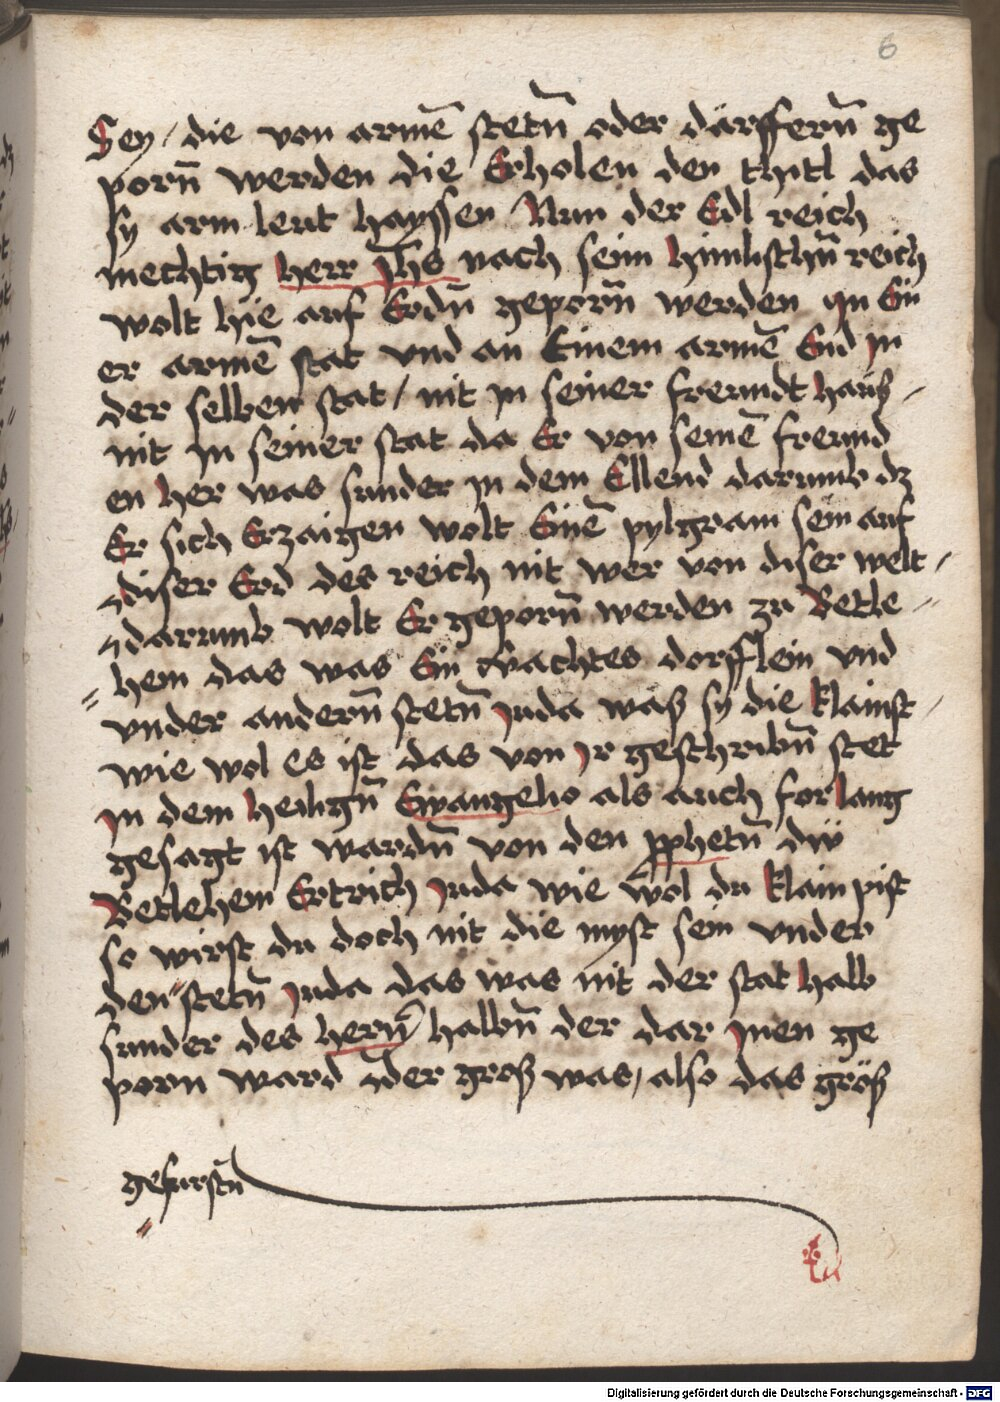 6
Sey / die von armē stetn̄ oder därffern̄ ge
porn̄ werden die Erholen den thitl das
sy arm leut hayssen / Nun der Edl reich
mechtig herr Jhs nach seim himlischn̄ reich
wolt hie auf Erdn̄ geporn̄ werden in Ein
er armē stat vnd an Einem armē End in
der selben stat / nit in seiner freundt hauß
nit in seiner stat da Er von seinē freund
en her was sunder in dem Ellend darumb dz
Er sich Erzaigen wolt Einē pylgram sein auf
diser Erd des reich nit wer von diser welt
darumb wolt Er geporn̄ werden zu Betle
hem das was Ein schwachtes dorfflein vnd
vnder andern̄ stetn̄ juda waß sy die klainst
wie wol es ist das von jr geschribn̄ stet
in dem heilign̄ Ewangelio als auch for lang
gesagt ist wardn̄ von den pphetn̄ dw̄
Betlehem Ertrich juda wie wol du klain pist
so wirst du doch nit die mynst sein vnder
den stetn̄ juda das was nit der stat halb
sunder des hern̄ halbn̄ der dar jnen ge
porn ward der groß was / also das größ
gefurstn̄
Digitalisierung gefördert durch die Deutsche Forschungsgemeinschaft - DFG